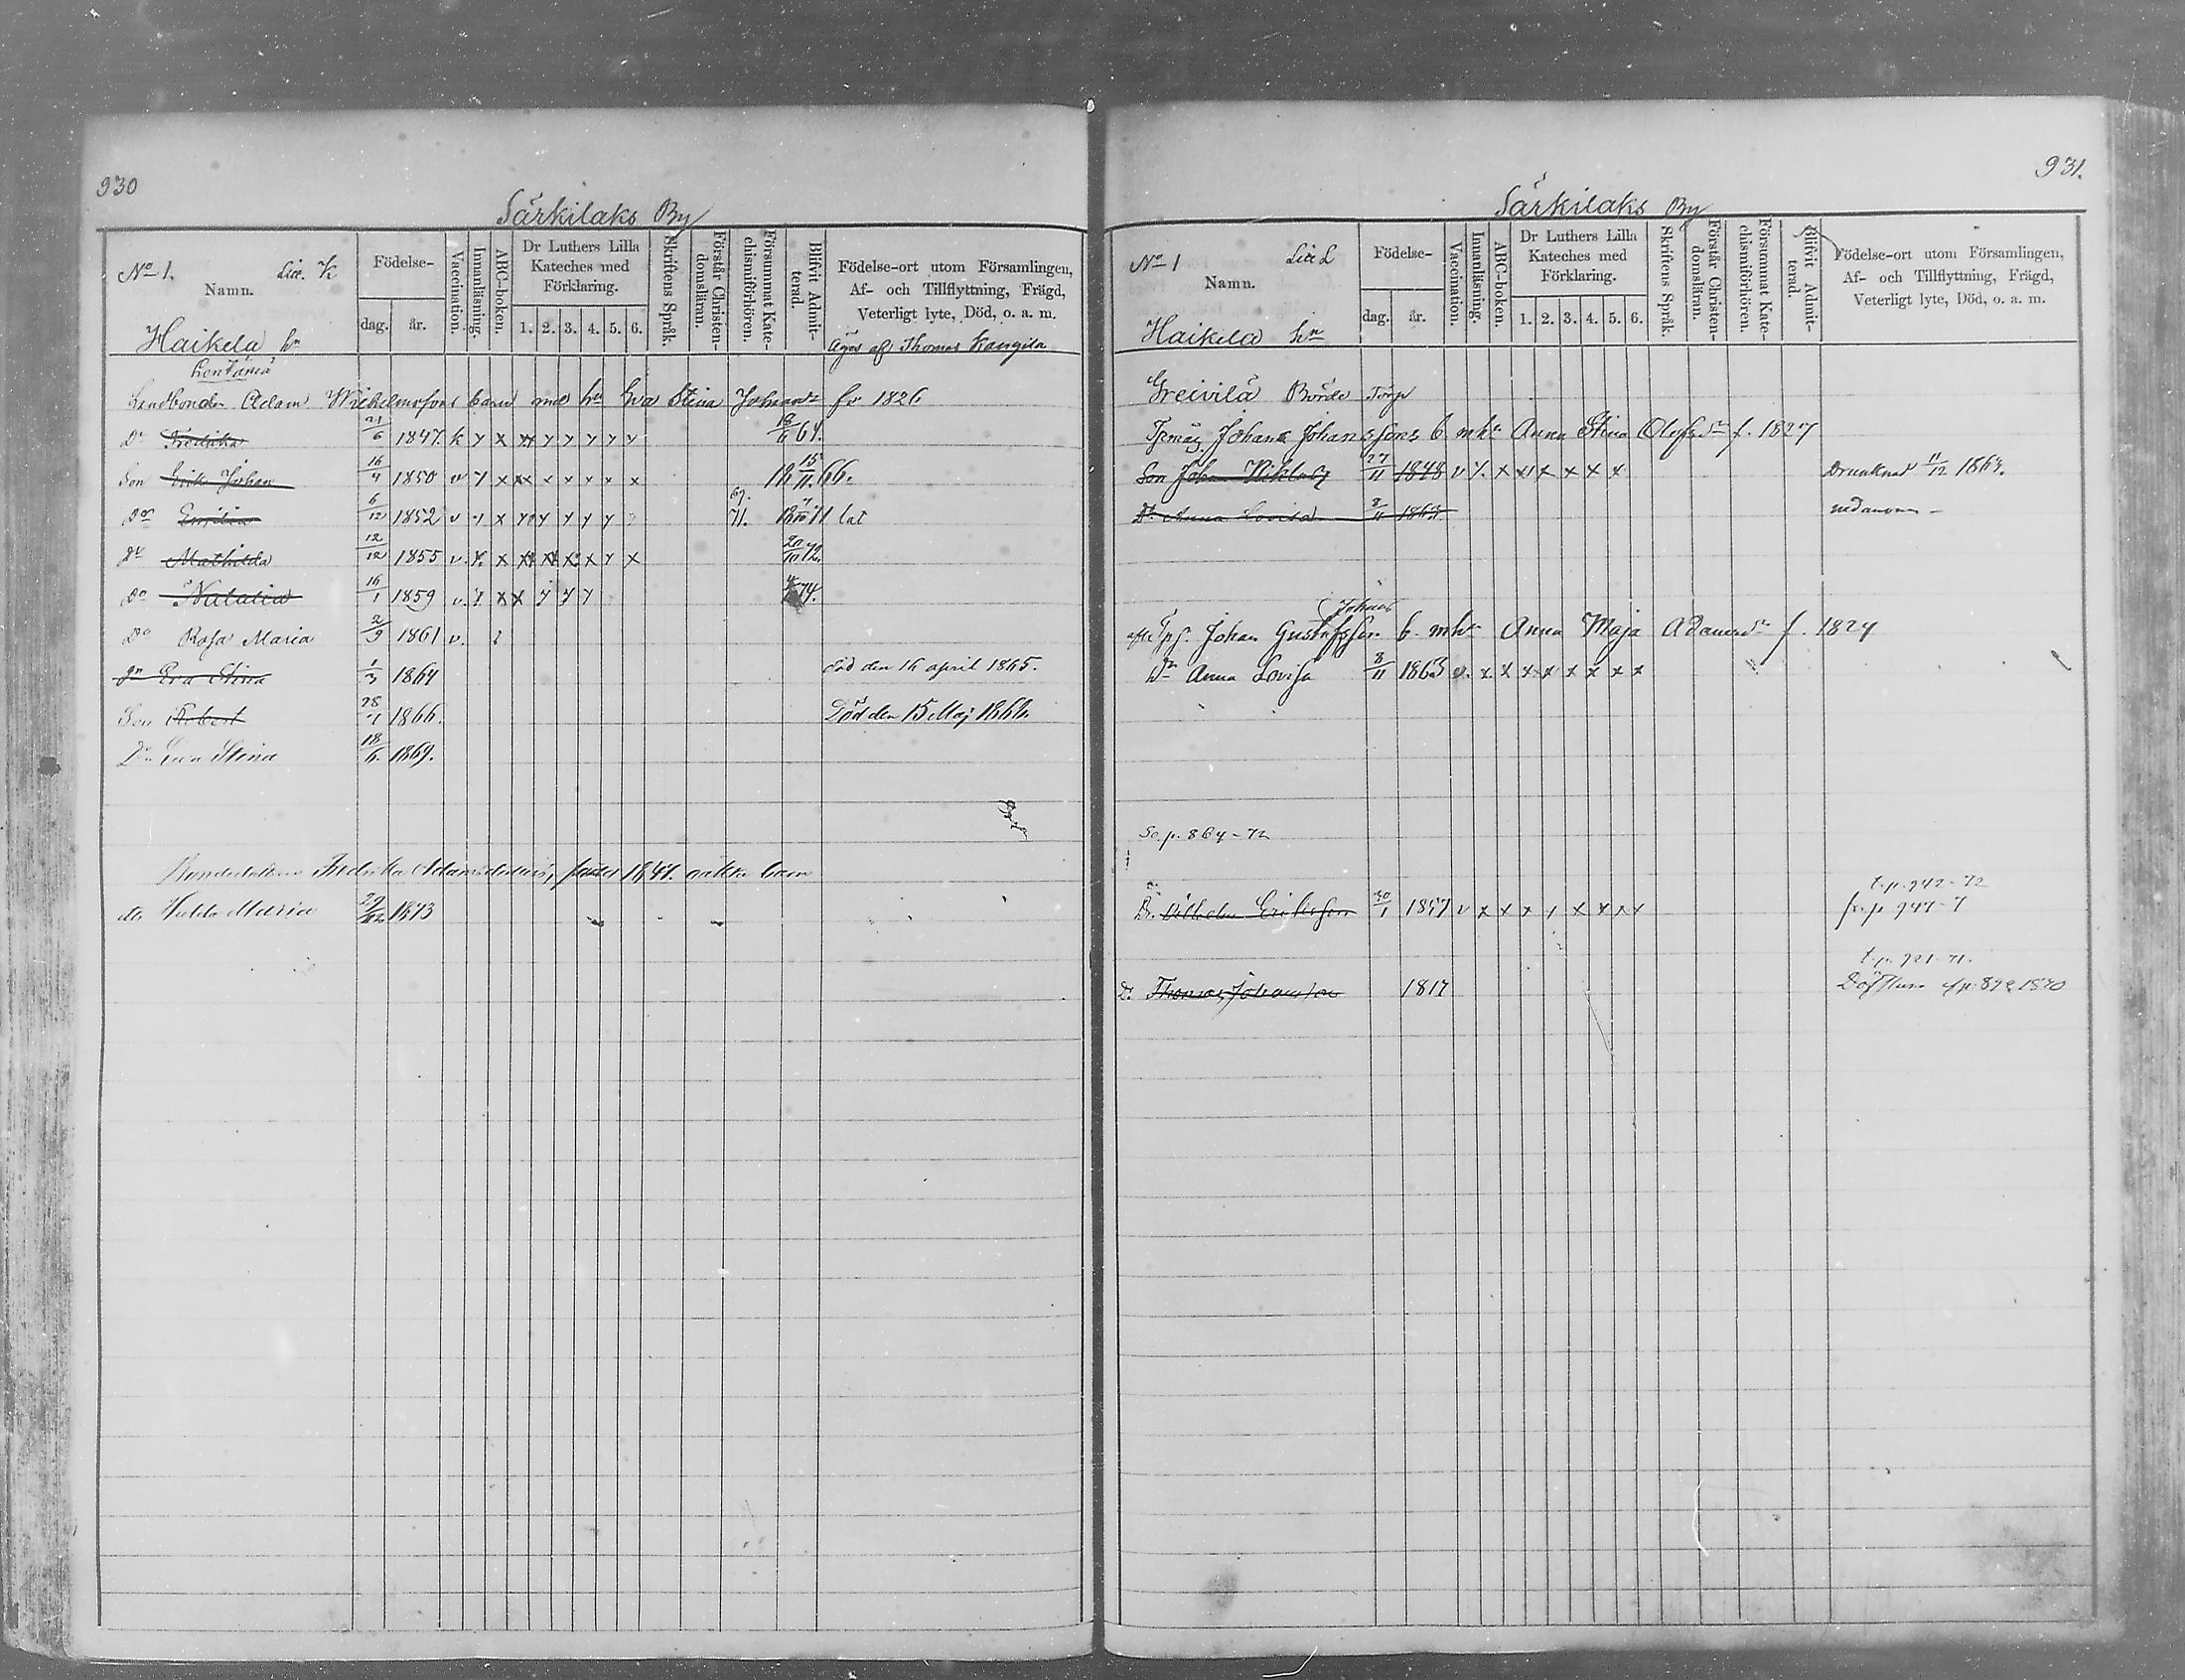 930
Särkilaks By
No 1. Litt. K
Namn.
Födelse-
dag. år.
Vaccination.
Innanläsning.
ABC-boken.
Dr Luthers Lilla Kateches med Förklaring.
1. 2. 3. 4. 5. 6.
Skriftens Språk.
Förstår Christendomsläran.
Försummat Katechismiförhören.
Blifvit Admitterad.
Födelse-ort utom Församlingen,
Af- och Tillflyttning, Frägd,
Veterligt lyte, Död, o. a. m.
Haikela hn Äges af Thomas Kangila
Lentämä
Landbonden Adam Wilhelmssons barn med h. Eva Stina Johansdr f. 1826
Dr Fredrika 21/6 1847. k y x xx y y y y v 18/6 64.
Son Erik Johan 16/4 1850 v y x xx x x x x x 18 15/11 66.
Dor Emilia 6/12 1852 v y x y y y y y 69. 71. 18 7/10 71 lat
Dr Mathilda 12/12 1855 v. x x x x x x y x 20/10 72.
Dr Natalia 16/1 1859 v. y x x y y y 74.
Dr Rosa Maria 2/9 1861 v.
Dr Eva Stina 1/3 1864 död den 16 april 1865.
Son Robert 28/1 1866. Död den 15 Maj 1866.
Dr Eva Stina 18/6. 1869.
Bondedottren Fredrika Adamsdotters, född 1847. oäkta barn
dr. Hulda Maria 29/12 1873
931.
Särkilaks By
No 1 Litt L
Namn.
Födelse-
dag. år.
Vaccination.
Innanläsning.
ABC-boken.
Dr Luthers Lilla Kateches med Förklaring.
1. 2. 3. 4. 5. 6.
Skriftens Språk.
Förstår Christendomsläran.
Försummat Katechismiförhören.
Blifvit Admitterad.
Födelse-ort utom Församlingen,
Af- och Tillflyttning, Frägd,
Veterligt lyte, Död, o. a. m.
Haikela hn
Greivilä Torp
Johan Johanssons b. m h. Anna Stina Olofsdr f. 1827
Son Johan Niklas 27/11 1848 v y. x x x x x x Drunknad 11/12 1864.
Dr Anna Lovisa 8/11 1863 nedanom
Johans
Johan Gustafsson b. m h. Anna Maja Adamsdr f. 1824
Dr Anna Lovisa 8/11 1863 v. x x x x x x x x
Se p. 864-72
t. p. 942-72
Dr. Wilhelm Eriksson 30/1 1857 v x x x y x x x x fr. p 947-7
t. p. 921-71.
D. Thomas Johansson 1817 Döfstum fr. p. 892 1870